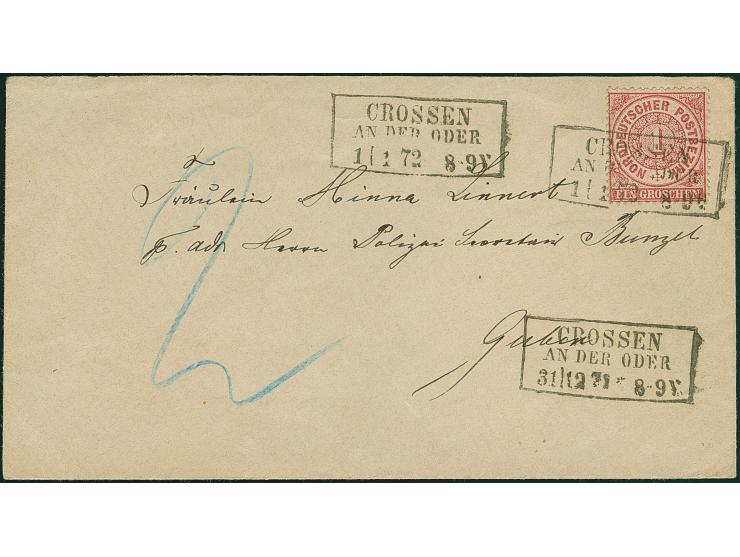 CROSSEN
AN DER ODER
1|1 72 8-9V
NORDDEUTSCHER POSTBEZIRK
1
EIN GROSCHEN
CROSSEN
AN
1|1 72 8-9V
Fräulein Minna Linnert
p. adr Herrn Polizei Secretair Bunzel
Guben
CROSSEN
AN DER ODER
31|12 71 * 8-9V.
2